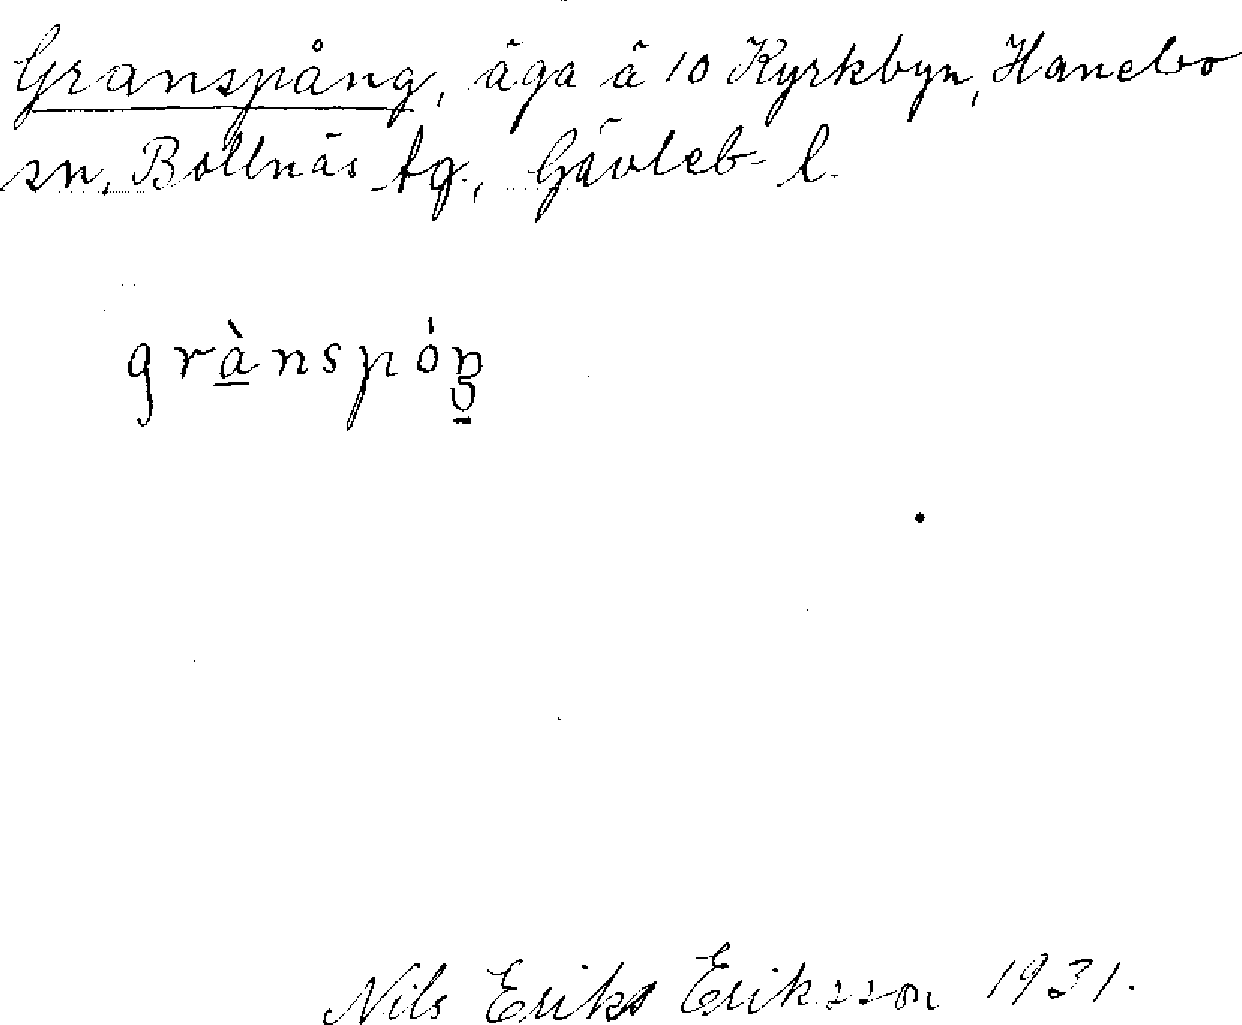 Granspång, äga å 10 Kyrkbyn, Hanebo
sn, Bollnäs tg., Gävleb. l.
grànspóŋ
Nils Eriks Eriksson 1931.